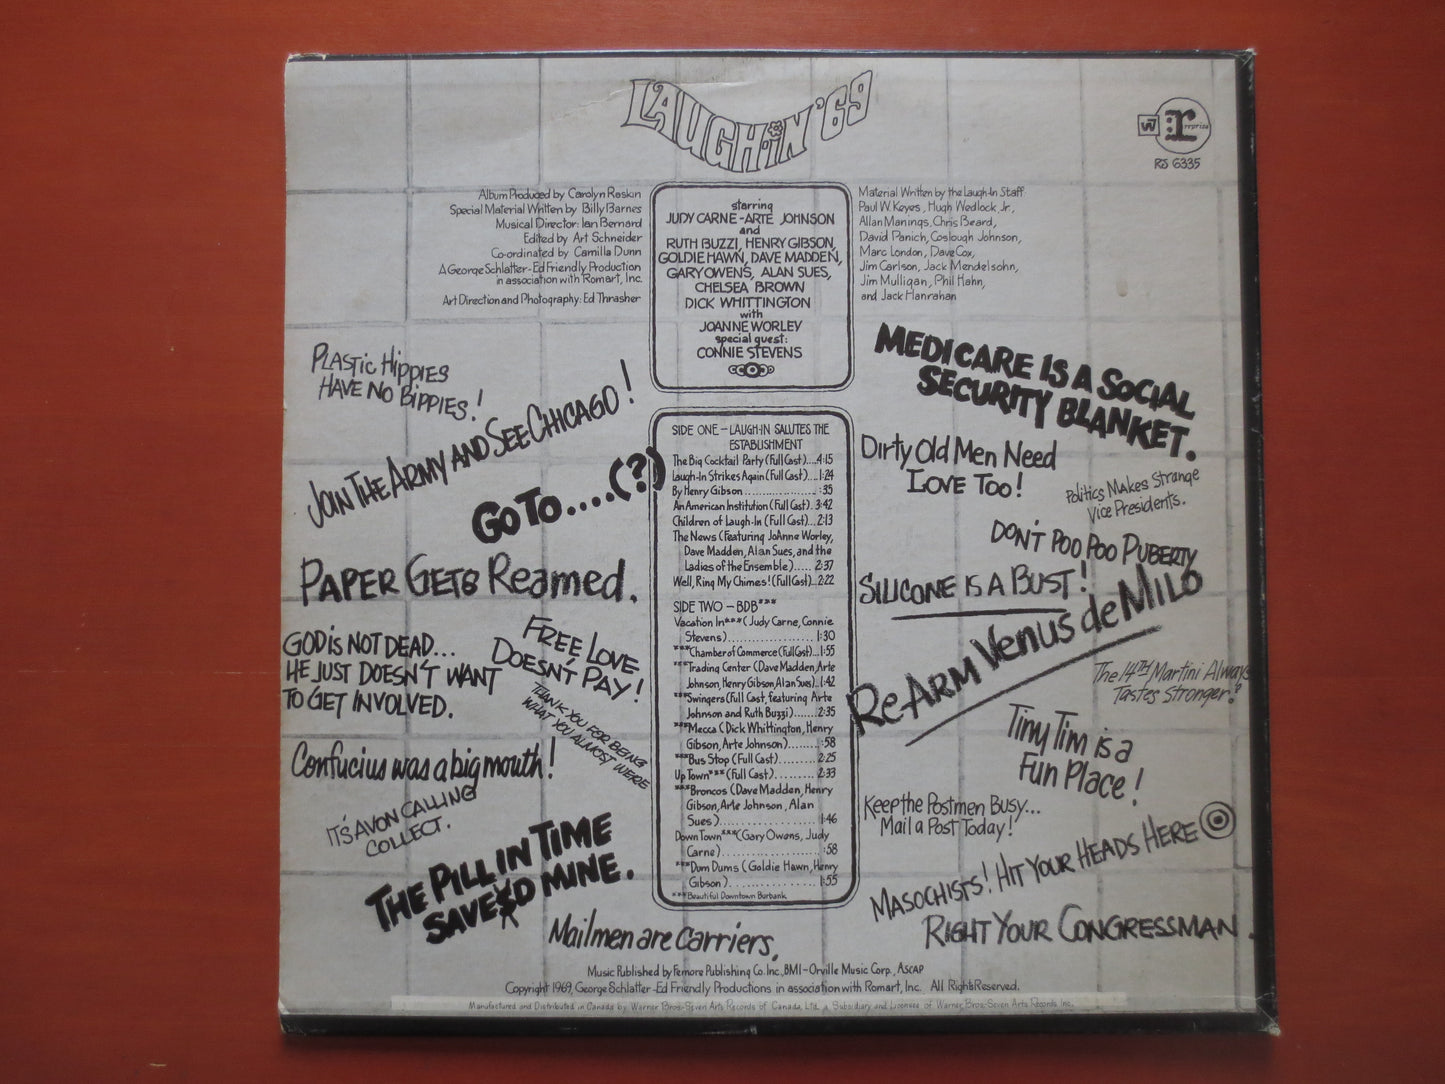 LAUGH-IN '69
W
r reprise
RS 6335
Album Produced by Carolyn Raskin
Special Material Written by Billy Barnes
Musical Director: Ian Bernard
Edited by Art Schneider
Co-ordinated by Camilla Dunn
A George Schlatter-Ed Friendly Production
in association with Romart, Inc.
Art Direction and Photography: Ed Thrasher
starring
JUDY CARNE-ARTE JOHNSON
and
RUTH BUZZI, HENRY GIBSON,
GOLDIE HAWN, DAVE MADDEN,
GARY OWENS, ALAN SUES,
CHELSEA BROWN
DICK WHITTINGTON
with
JOANNE WORLEY
special guest:
CONNIE STEVENS
Material Written by the Laugh-In Staff
Paul W. Keyes, Hugh Wedlock Jr,
Allan Manings, Chris Beard,
David Panich, Coslough Johnson,
Marc London, Dave Cox,
Jim Carlson, Jack Mendelsohn,
Jim Mulligan, Phil Hahn,
and Jack Hanrahan
PLASTIC HIPPIES
HAVE NO BIPPIES!
JOIN THE ARMY AND SEE CHICAGO!
GO TO....(?)
PAPER GETS REAMED.
GOD IS NOT DEAD...
HE JUST DOESN'T WANT
TO GET INVOLVED.
FREE LOVE
DOESN'T PAY!
THANK YOU FOR BEING
WHAT YOU ALMOST WERE
Confucius was a big mouth!
IT'S AVON CALLING
COLLECT.
THE PILL IN TIME
SAVED MINE.
Mailmen are carriers.
SIDE ONE - LAUGH-IN SALUTES THE
ESTABLISHMENT
The Big Cocktail Party (Full Cast)....4:15
Laugh-In Strikes Again (Full Cast)...1:24
By Henry Gibson.................:35
An American Institution (Full Cast). 3:42
Children of Laugh-In (Full Cast)...2:13
The News (Featuring JoAnne Worley,
Dave Madden, Alan Sues, and the
Ladies of the Ensemble)..... 2:37
Well, Ring My Chimes! (Full Cast)..2:22
SIDE TWO - BDB***
Vacation In***(Judy Carne, Connie
Stevens).................... 1:30
***Chamber of Commerce (Full Cast)..1:55
***Trading Center (Dave Madden, Arte
Johnson, Henry Gibson, Alan Sues).1:42
***Swingers (Full Cast, featuring Arte
Johnson and Ruth Buzzi)......2:35
***Mecca (Dick Whittington, Henry
Gibson, Arte Johnson)........:58
***Bus Stop (Full Cast)........2:25
Up Town*** (Full Cast)........2:33
***Broncos (Dave Madden, Henry
Gibson, Arte Johnson, Alan
Sues)......................1:46
Down Town***(Gary Owens, Judy
Carne)......................:58
***Dum Dums (Goldie Hawn, Henry
Gibson)...................1:55
***Beautiful Downtown Burbank
MEDICARE IS A SOCIAL
SECURITY BLANKET.
Dirty Old Men Need
Love Too!
Politics Makes Strange
Vice Presidents.
DON'T POO POO PUBERTY
SILICONE IS A BUST!
Re-Arm Venus de Milo
The 14TH Martini Always
Tastes Stronger.?
Tiny Tim is a
Fun Place!
Keep the Postmen Busy...
Mail a Post Today!
MASOCHISTS! HIT YOUR HEADS HERE
RIGHT YOUR CONGRESSMAN.
Music Published by Femore Publishing Co. Inc., BMI-Orville Music Corp., ASCAP
Copyright 1969, George Schlatter-Ed Friendly Productions in association with Romart, Inc. All Rights Reserved.
Manufactured and Distributed in Canada by Warner Bros.-Seven Arts Records of Canada, Ltd. a Subsidiary and Licensee of Warner Bros.-Seven Arts Records, Inc.